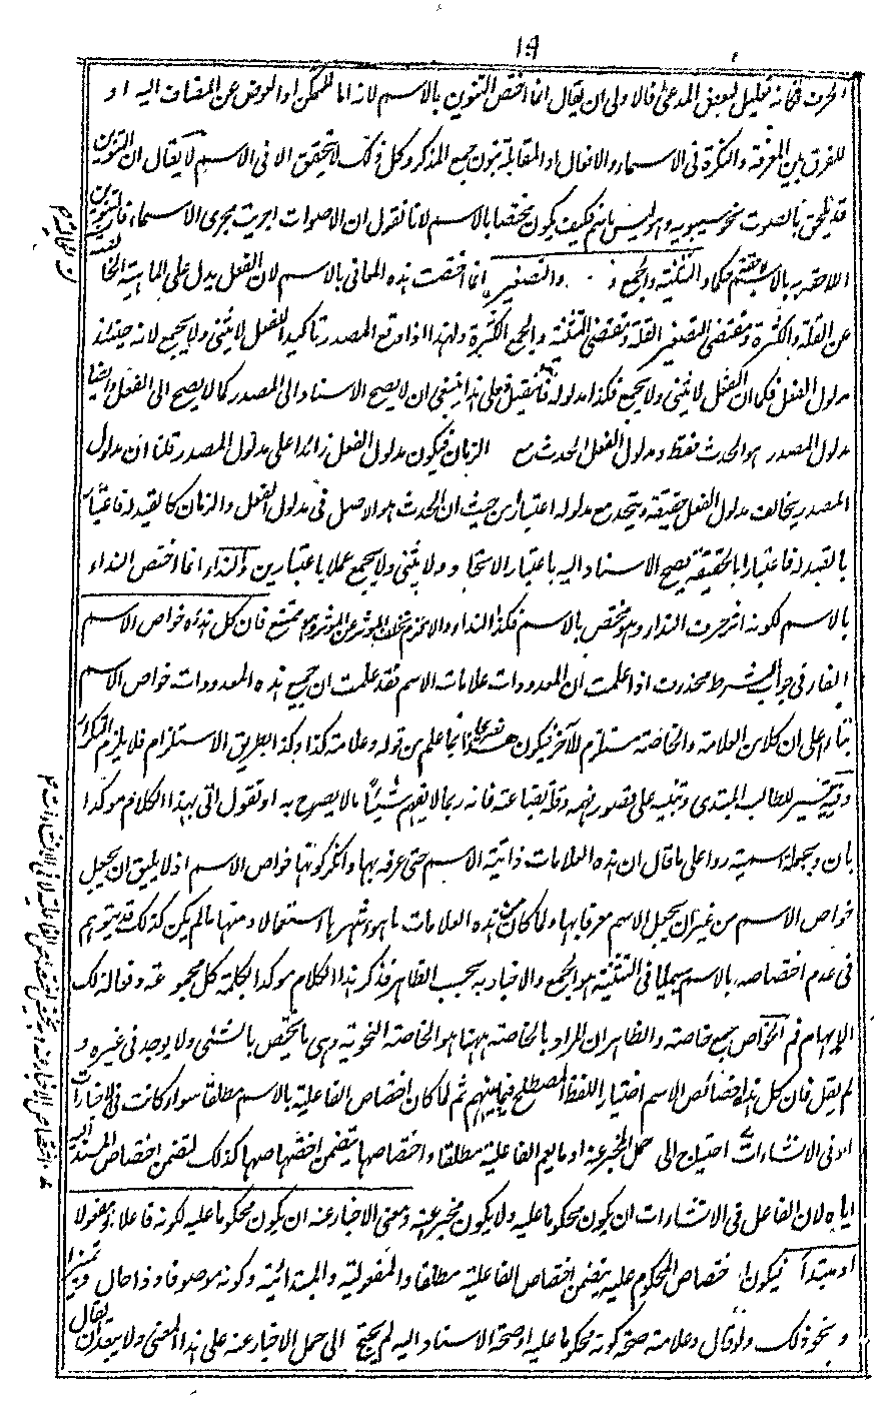 ١٩
الحرف فكانه تعليل لبعض المدعى فالاولى ان يقال انما اختص التنوين بالاسم لانه اما للتمكن او العوض عن المضاف اليه او
للفرق بين المعرفة والنكرة فى الاسماء والافعال او المقابلة بنون جمع المذكر وكل ذلك لا يتحقق الا فى الاسم لا يقال ان التنوين
قد يلحق بالصوت نحو سيبويه وهو ليس باسم فكيف يكون مختصا بالاسم لانا نقول ان الاصوات اجريت مجرى الاسماء فالتنوين
اللاحقة به بالاسم حكما والتثنية والجمع والتصغير انما اختصت هذه المعانى بالاسم لان الفعل يدل على الماهية
عن القلة والكثرة ومقتضى التصغير القلة ومقتضى التثنية والجمع الكثرة ولهذا اذا وقع المصدر تاكيدا للفعل لا يثنى ولا يجمع لانه حينئذ
مدلول الفعل فكما ان الفعل لا يثنى ولا يجمع فكذا مدلوله فان قيل فعلى هذا ينبغى ان لا يصح الاسناد الى المصدر كما لا يصح الى الفعل وايضا
مدلول المصدر هو الحدث فقط ومدلول الفعل الحدث مع الزمان فيكون مدلول الفعل زائدا على مدلول المصدر قلنا ان مدلول
المصدر يخالف مدلول الفعل حقيقة ويتحد مع مدلوله اعتبارا من حيث ان الحدث هو الاصل فى مدلول الفعل والزمان كالقيد له
بالقيد له فاعتبارا بالحقيقة يصح الاسناد اليه باعتبار الاتحاد ولا يثنى ولا يجمع عملا باعتبارين والنداء انما اختص النداء
بالاسم لكونه اثر حرف النداء وهو مختص بالاسم فكذا النداء والا لزم تخلف المؤثر عن المؤثر وهو ممتنع فان كل هذه خواص الاسم
الفاء فى جواب الشرط محذوف اذا علمت ان المعدودات علامات الاسم فقد علمت ان جميع هذه المعدودات خواص الاسم
بناء على ان كلا من العلامة والخاصة مستلزم للآخر فيكون هذا بما علم من قوله وعلامته كذا وكذا بطريق الاستلزام فلا يلزم التكرار
للطالب المبتدى وتنبيه على قصور فهمه وقلة بضاعته فانه ربما لا يفهم شيئا ما لا يصرح به او نقول اتى بهذا الكلام موكدا
بان وبجملة اسمية ردا على ما قال ان هذه العلامات ذاتية الاسم حتى عرفه بها وانكر كونها خواص الاسم اذ لا يليق ان يجعل
خواص الاسم من غير ان يجعل الاسم معرفا بها ولما كان من هذه العلامات ما هو اشهر باستعمالا ومنها ما لم يكن كذلك قد يتوهم
فى عدم اختصاصه بالاسم سيما فى التثنية والجمع والاخبار به بحسب الظاهر فذكر هذا الكلام موكدا بكلمة كل مجموعة دفعا لذلك
الايهام ثم الخواص جمع خاصة والظاهر ان المراد بالخاصة ههنا هو الخاصة النحوية وهى ما يختص بالشئ ولا يوجد فى غيره و
لم يقل فان كل هذه خصائص الاسم اختيارا للفظ المصطلح فيما بينهم ثم لما كان اختصاص الفاعلية بالاسم مطلقا سواء كانت فى الاخبارات
او فى الانشاءات احتيج الى حمل المخبر عنه او ما يعم الفاعلية مطلقا واختصاصها يتضمن اختصاصها كذلك لتضمن اختصاص المسند اليه
اياه لان الفاعل فى الانشاءات ان يكون محكوما عليه ولا يكون مخبرا عنه ومعنى الاخبار عنه ان يكون محكوما عليه لكونه فاعلا او مفعولا
او مبتدأ فيكون اختصاص المحكوم عليه يتضمن اختصاص الفاعلية مطلقا والمفعولية والمبتدائية وكونه موصوفا وذا حال وتميزا
ونحو ذلك ولو قال وعلامته صحة كونه محكوما عليه او صحة الاسناد اليه لم يحتج الى حمل الاخبار عنه على هذا المعنى ولا يبعد ان يقال